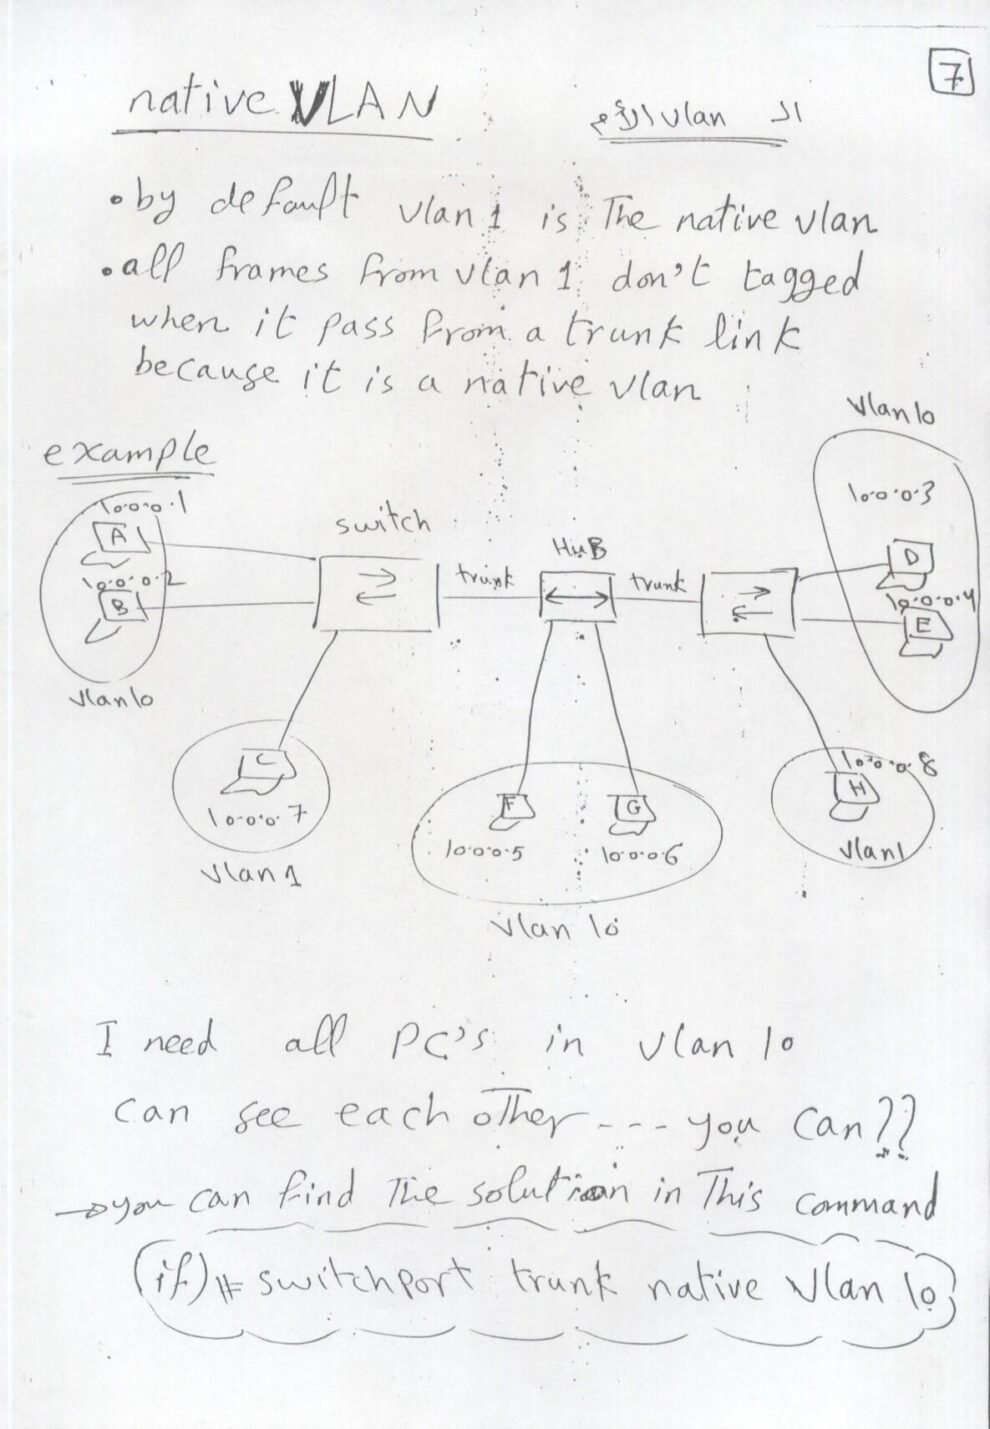 7
native VLAN
ال vlan الأم
• by default vlan 1 is The native vlan
• all frames from vlan 1 don't tagged
when it pass from a trunk link
because it is a native vlan
example
Vlan 10
10.0.0.1
A
10.0.0.2
B
Vlan 10
switch
trunk
HuB
trunk
10.0.0.3
D
10.0.0.4
E
C
10.0.0.7
Vlan 1
F
10.0.0.5
G
10.0.0.6
Vlan 10
10.0.0.8
H
Vlan 1
I need all PC's in Vlan 10
can see each other --- you can??
→ you can find The solution in This command
(if)# switchport trunk native Vlan 10